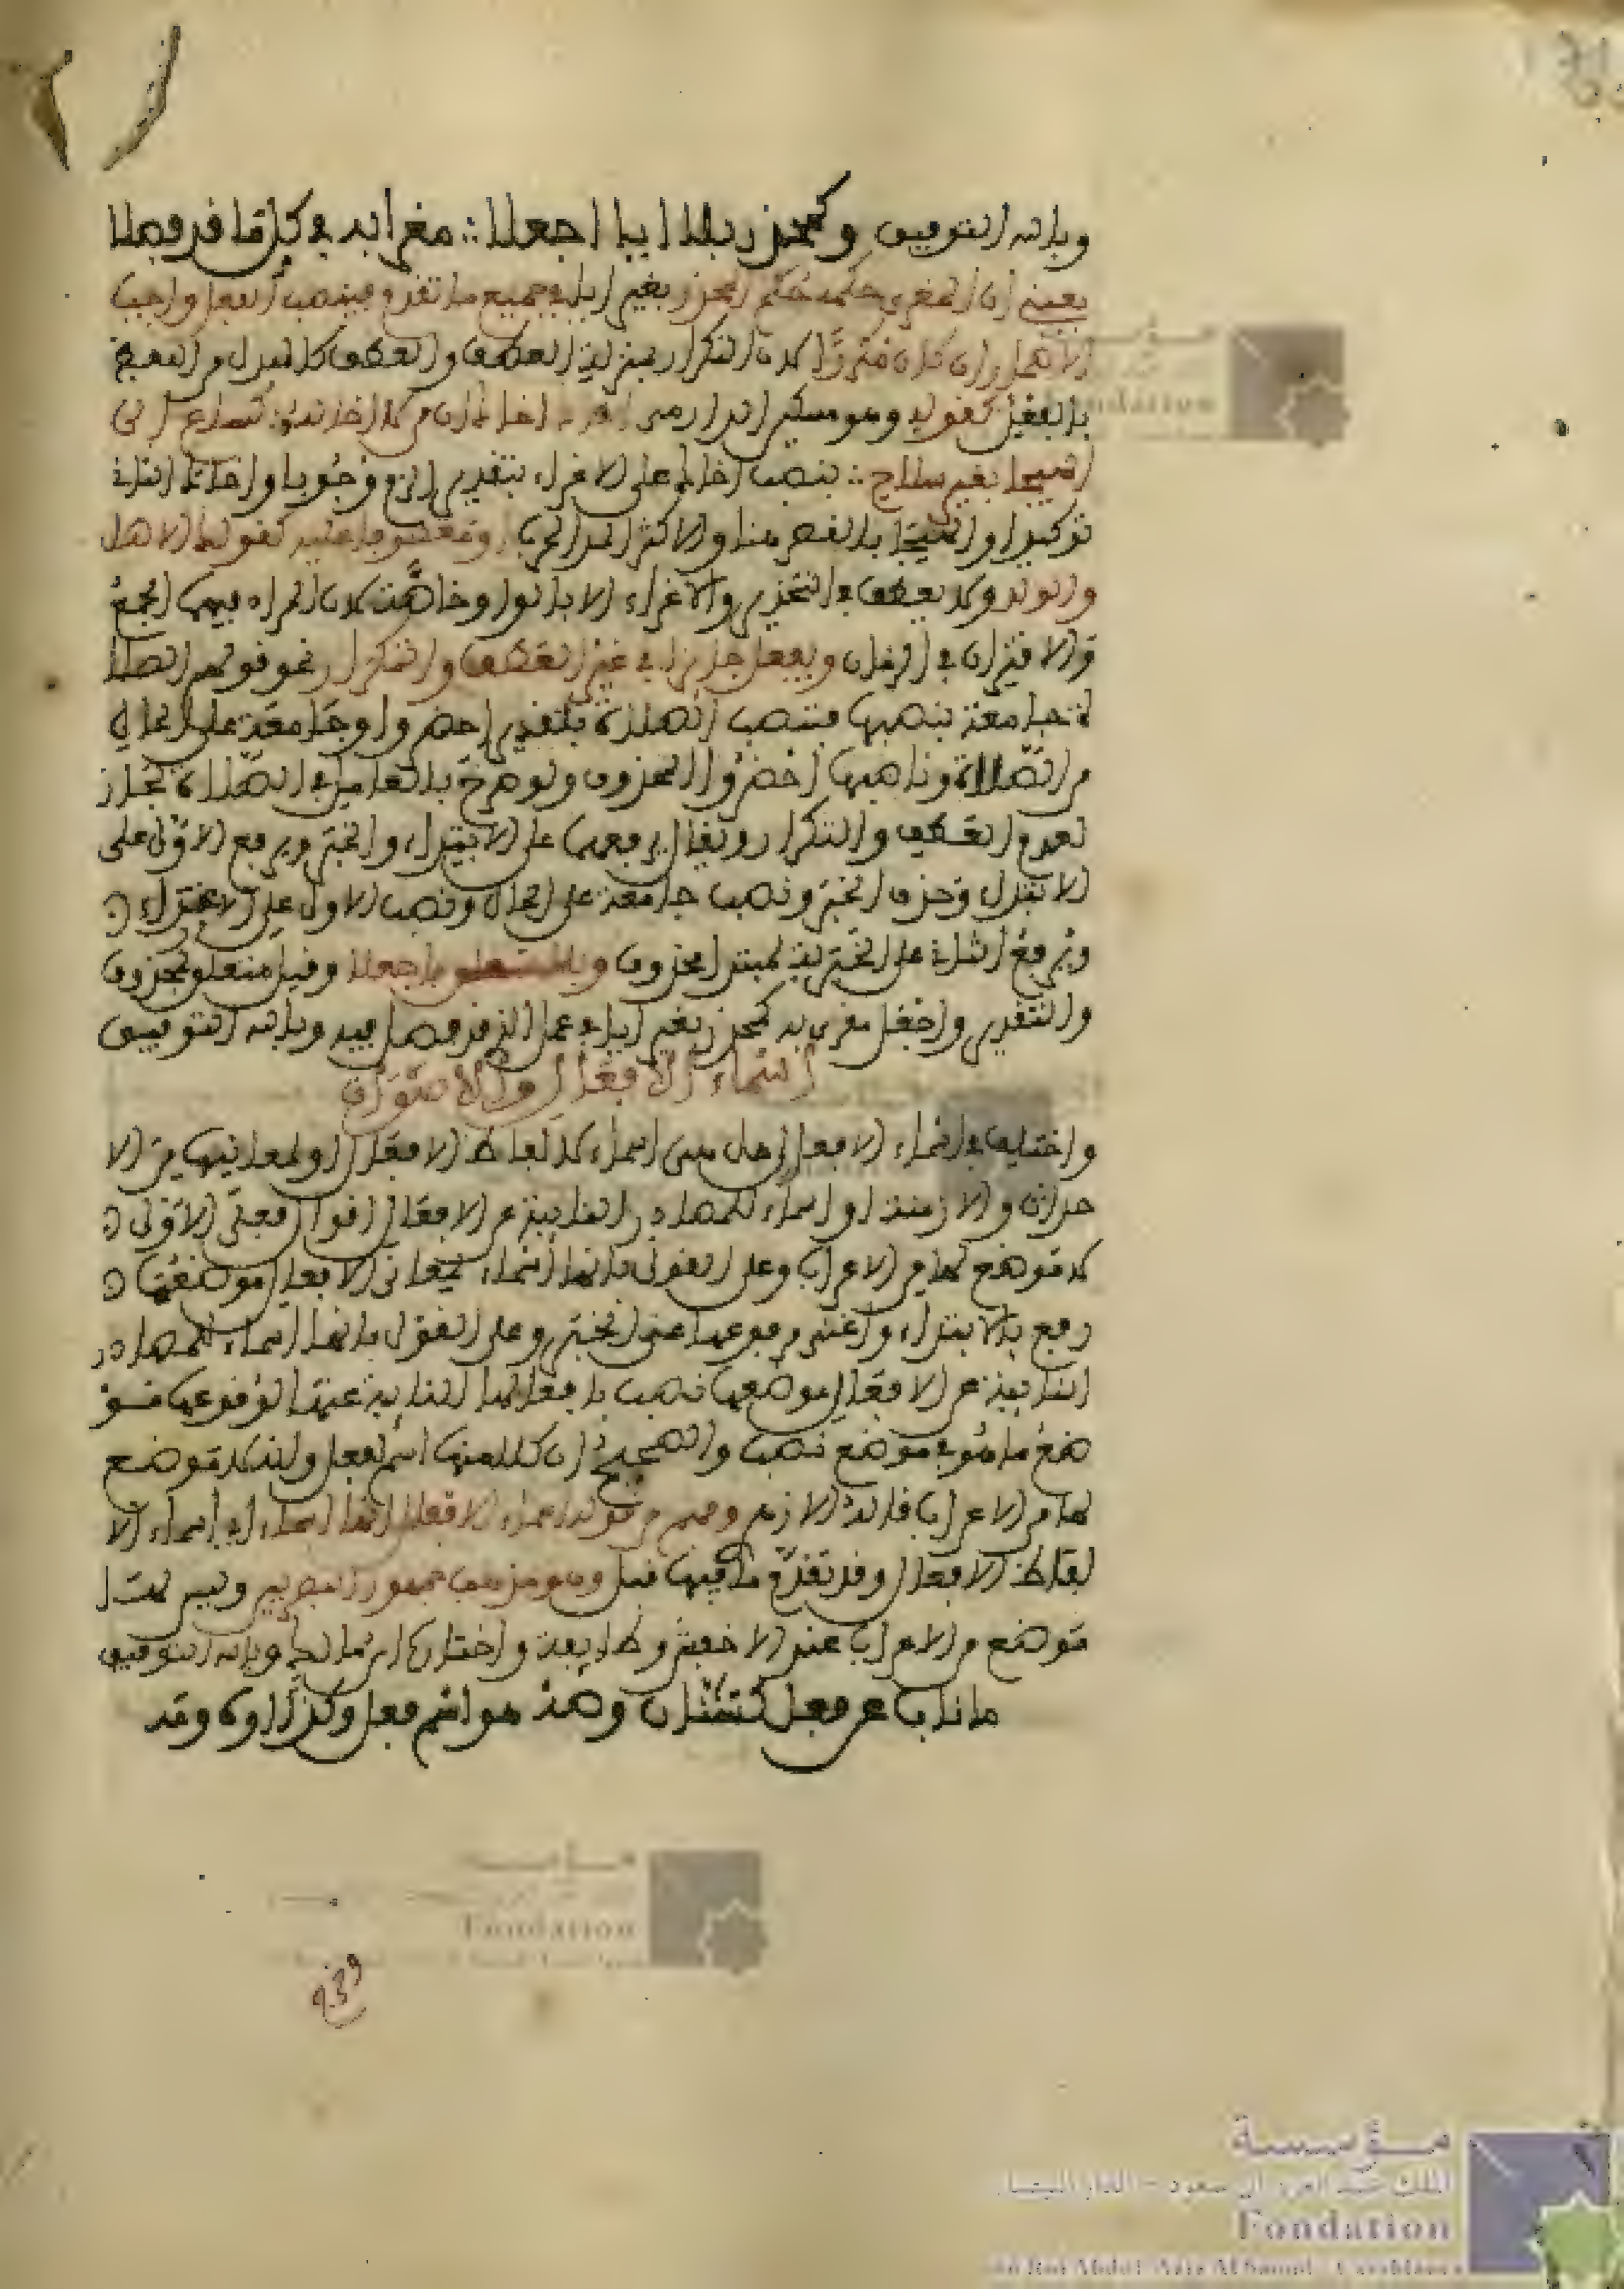 وبالله التوفيق وكمحذر بلا ايا اجعلا ∴ مغرا به في كل ما قد فصلا
يعني أن المغرى حكمه حكم المحذر بغير إيا في جميع ما تقدم فينصب العامل واجب
الاضمار إن كان مكررا لان التكرار بمنزلة العطف والعطف كالبدل من اللفظ
بالفعل كقوله وهو مسكين الدارمي أخاك أخاك إن من لا أخا له ∴ كساع إلى
الهيجا بغير سلاح ∴ بنصب أخاك على الاغراء بتقدير إلزم وجوبا وأخاك الثاني
توكيدا والهيجا بالقصر هنا والاكثر المد الحرب أو معطوفا عليه كقولك الاهل
والولد ولا يعطف في التحذير والاغراء إلا بالواو خاصة لان المراد فيهما الجمع
والاقتران في الزمان ويفعل جائزا في غير العطف والتكرار نحو قولهم الصلا
ة جامعة بنصبهما فتنصب الصلاة بتقدير احضروا وجامعة على الحال
من الصلاة وناصبها احضروا المحذوف ولو صرح بالعامل في الصلاة لجاز
لعدم العطف والتكرار ويقال برفعهما على الابتداء والخبر وبرفع الاول على
الابتداء وحذف الخبر ونصب جامعة على الحال ونصب الاول على الاغراء
وبرفع الثاني على الخبرية لمبتدإ محذوف وبلا متعلق باجعلا وقيل متعلق بمحذوف
والتقدير واجعل مغرى به كمحذر بغير إيا في عمل الذي قد فصل فيه وبالله التوفيق
أسماء الافعال والاصوات
واختلف في أسماء الافعال هل هي أسماء لالفاظ الافعال أو لمعانيها من الا
حداث والازمنة أو أسماء للمصادر النائبة عن الافعال أقوال فعلى الاول
لا موضع لها من الاعراب وعلى القول بانها أسماء لمعاني الافعال موضعها
رفع بالابتداء وأغنى مرفوعها عن الخبر وعلى القول بانها أسماء للمصادر
النائبة عن الافعال موضعها نصب بافعالها النائبة عنها لوقوعها مو
ضع ما هو في موضع نصب والصحيح أن كلا منها اسم لفعل وانه لا موضع
لها من الاعراب قاله الازهري وفهم من قوله أسماء الافعال أنها أسماء أي أسماء الا
لفاظ الافعال وقد تقدم ما فيها قبل وهو مذهب جمهور البصريين وليس لها
موضع من الاعراب عند الاخفش وطائفة واختاره ابن مالك وبالله التوفيق
ما ناب عن فعل كشتان وصه هو اسم فعل وكذا أوه ومه
مؤسسة
الملك عبد العزيز آل سعود - الدار البيضاء
Fondation
du Roi Abdul-Aziz Al Saoud - Casablanca